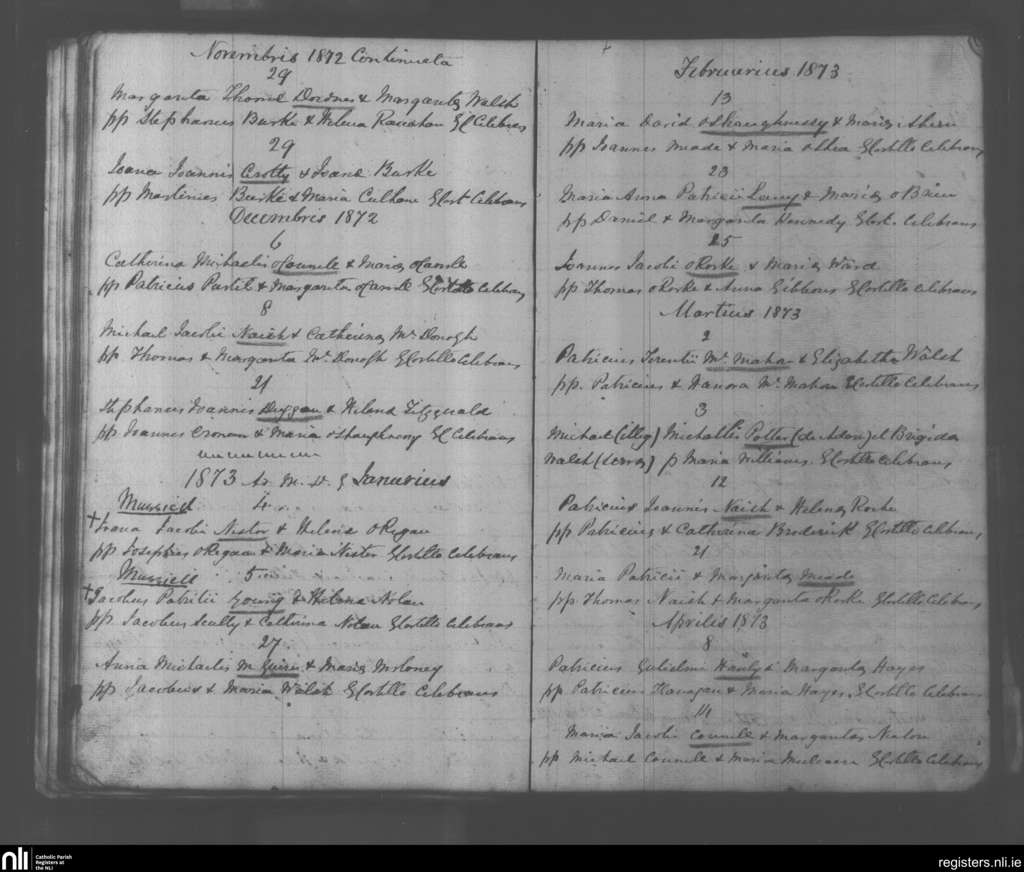 Novembris 1872 Continuata
29
Margarita Thomae & Margarita Walsh
pp Stephanus Burke & Helena Ranahan EC Celebrans
29
Joana Joannis Crotty & Joana Burke
pp Martinus Burke & Maria Culhane ECost Celebrans
Decembris 1872
6
Catherina Michaelis OConnell & Maria
pp Patricius & Margarita ECostello Celebrans
8
Michael Jacobi Naish & Catherina Mc Donogh
pp Thomas & Margarita Mc Donogh ECostello Celebrans
21
Stephanus Joannis Duggan & Helena Fitzgerald
pp Joannes Cronan & Maria OShaughnessy EC Celebrans
1873 Januarius
Married 4
+ Joana Jacobi Nestor & Helena ORegan
pp Josephus ORegan & Maria Nestor ECostello Celebrans
Married 5
+ Jacobus Patritii & Helena Nolan
pp Jacobus Scully & Catherina Nolan ECostello Celebrans
27
Anna Michaelis Mc Guire & Maria Moloney
pp Jacobus & Maria Walsh ECostello Celebrans
Februarius 1873
13
Maria David OShaughnessy & Maria Ahern
pp Joannes Meade & Maria OShea ECostello Celebrans
23
Maria Anna Patricii & Maria O Brien
pp Daniel & Margarita Kennedy ECost. Celebrans
25
Joannes Jacobi ORorke & Maria Ward
pp Thomas ORorke & Anna Gibbons ECostello Celebrans
Martius 1873
2
Patricius Terentii Mc Mahon & Elizabetha Walsh
pp. Patricius & Hanora Mc Mahon ECostello Celebrans
3
Michael (illeg) Michaelis Potter (de Adare) et Brigida
Walsh p Maria Williams ECostello Celebrans
12
Patricius Joannis Naish & Helena Roche
pp Patricius & Catherina Broderick ECostello Celebrans
21
Maria Patricii & Margarita Meade
pp Thomas Naish & Margarita ORorke ECostello Celebrans
Aprilis 1873
8
Patricius Gulielmi & Margarita Hayes
pp Patricius Flanagan & Maria Hayes ECostello Celebrans
14
Maria Jacobi Connell & Margarita
pp Michael Connell & Maria ECostello Celebrans
nli
Catholic Parish
Registers at
the NLI
registers.nli.ie